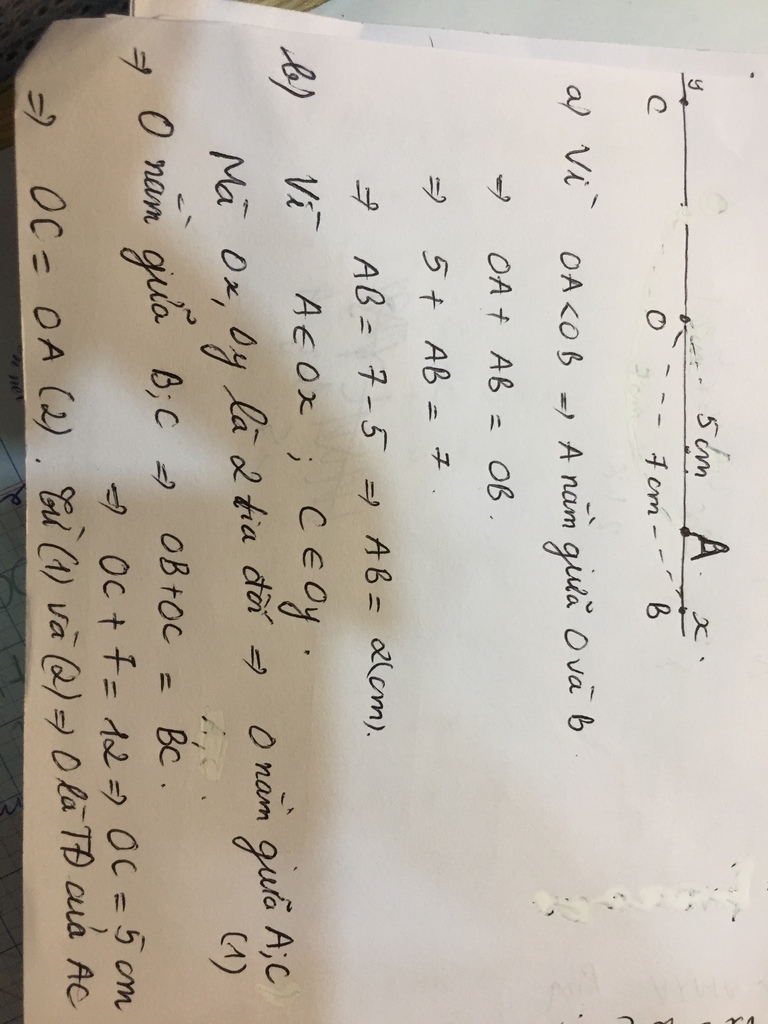 y x.
C O 5cm A B
7cm
a) Vì OA < OB => A nằm giữa O và B.
=> OA + AB = OB.
=> 5 + AB = 7.
=> AB = 7 - 5 => AB = 2(cm).
b) Vì A ∈ Ox ; C ∈ Oy.
Mà Ox, Oy là 2 tia đối => O nằm giữa A;C (1)
=> O nằm giữa B;C => OB + OC = BC.
=> OC + 7 = 12 => OC = 5 cm
=> OC = OA (2). Từ (1) và (2) => O là TĐ của AC